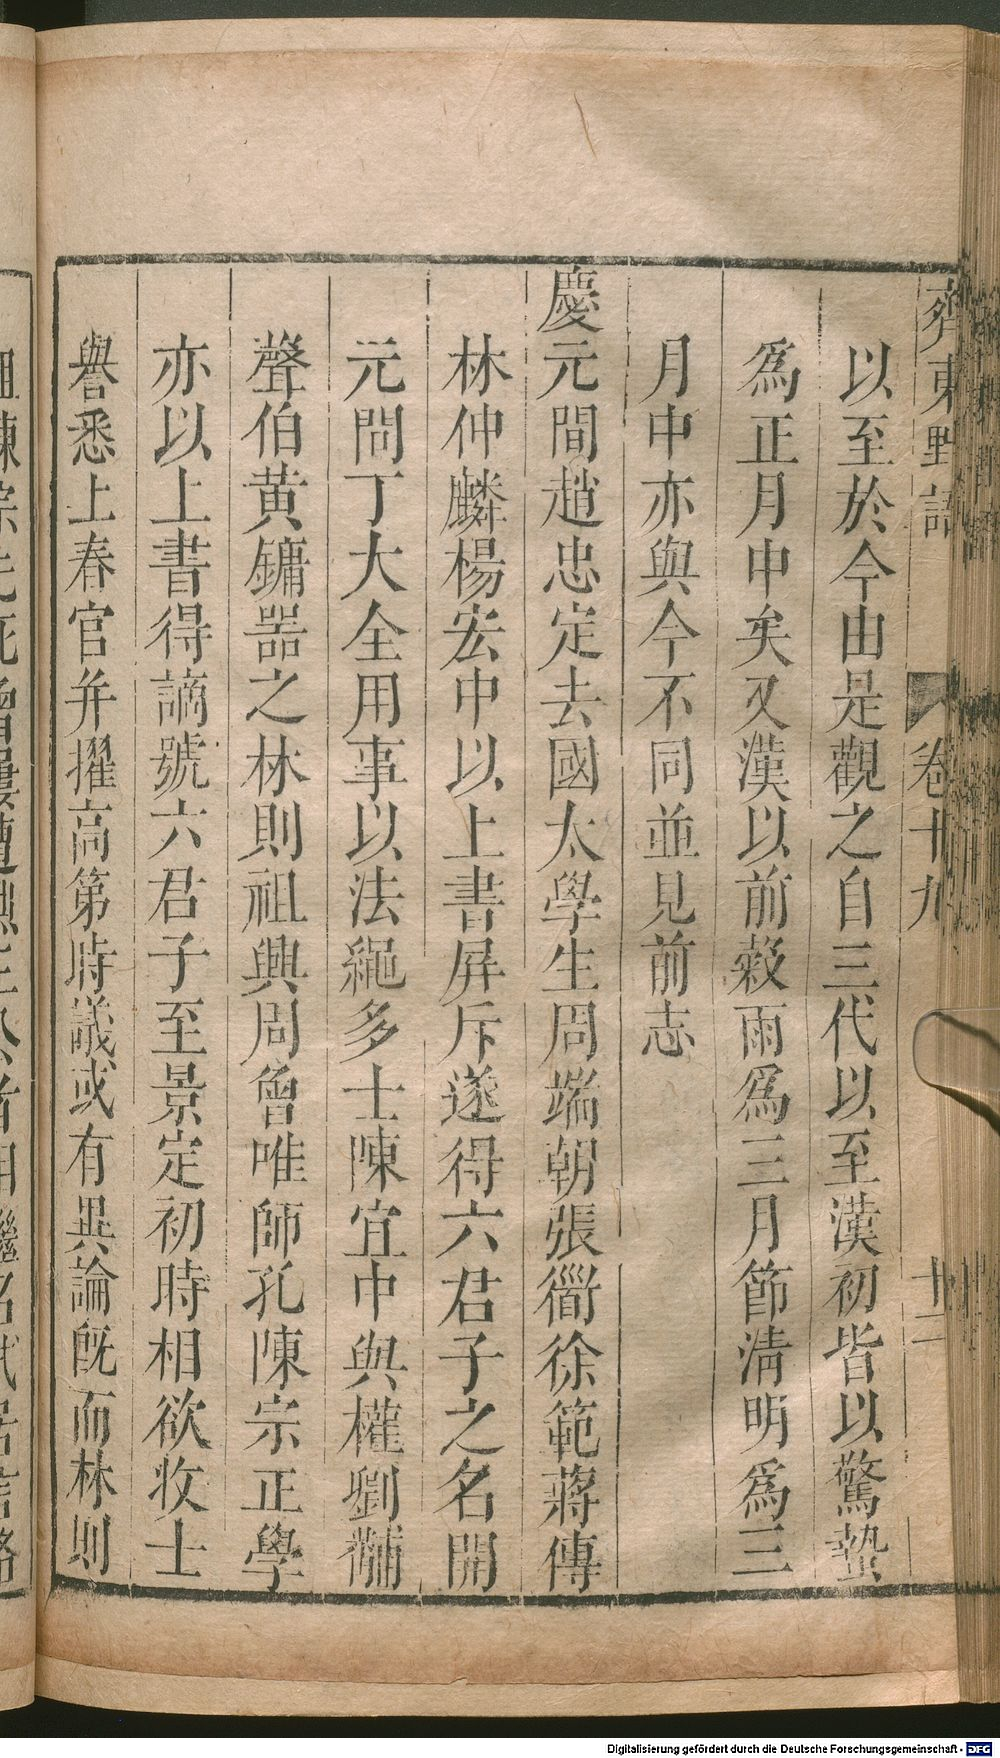 齊東野語
卷十九
十二
以至於今由是觀之自三代以至漢初皆以驚蟄
爲正月中矣又漢以前穀雨爲三月節淸明爲三
月中亦與今不同並見前志
慶元間趙忠定去國太學生周端朝張衟徐範蔣傳
林仲麟楊宏中以上書屛斥遂得六君子之名開
元間丁大全用事以法繩多士陳宜中與權劉黼
聲伯黃鏞器之林則祖興周曾唯師孔陳宗正學
亦以上書得謫號六君子至景定初時相欲收士
譽悉上春官并擢高第時議或有異論旣而林則
Digitalisierung gefördert durch die Deutsche Forschungsgemeinschaft - DFG